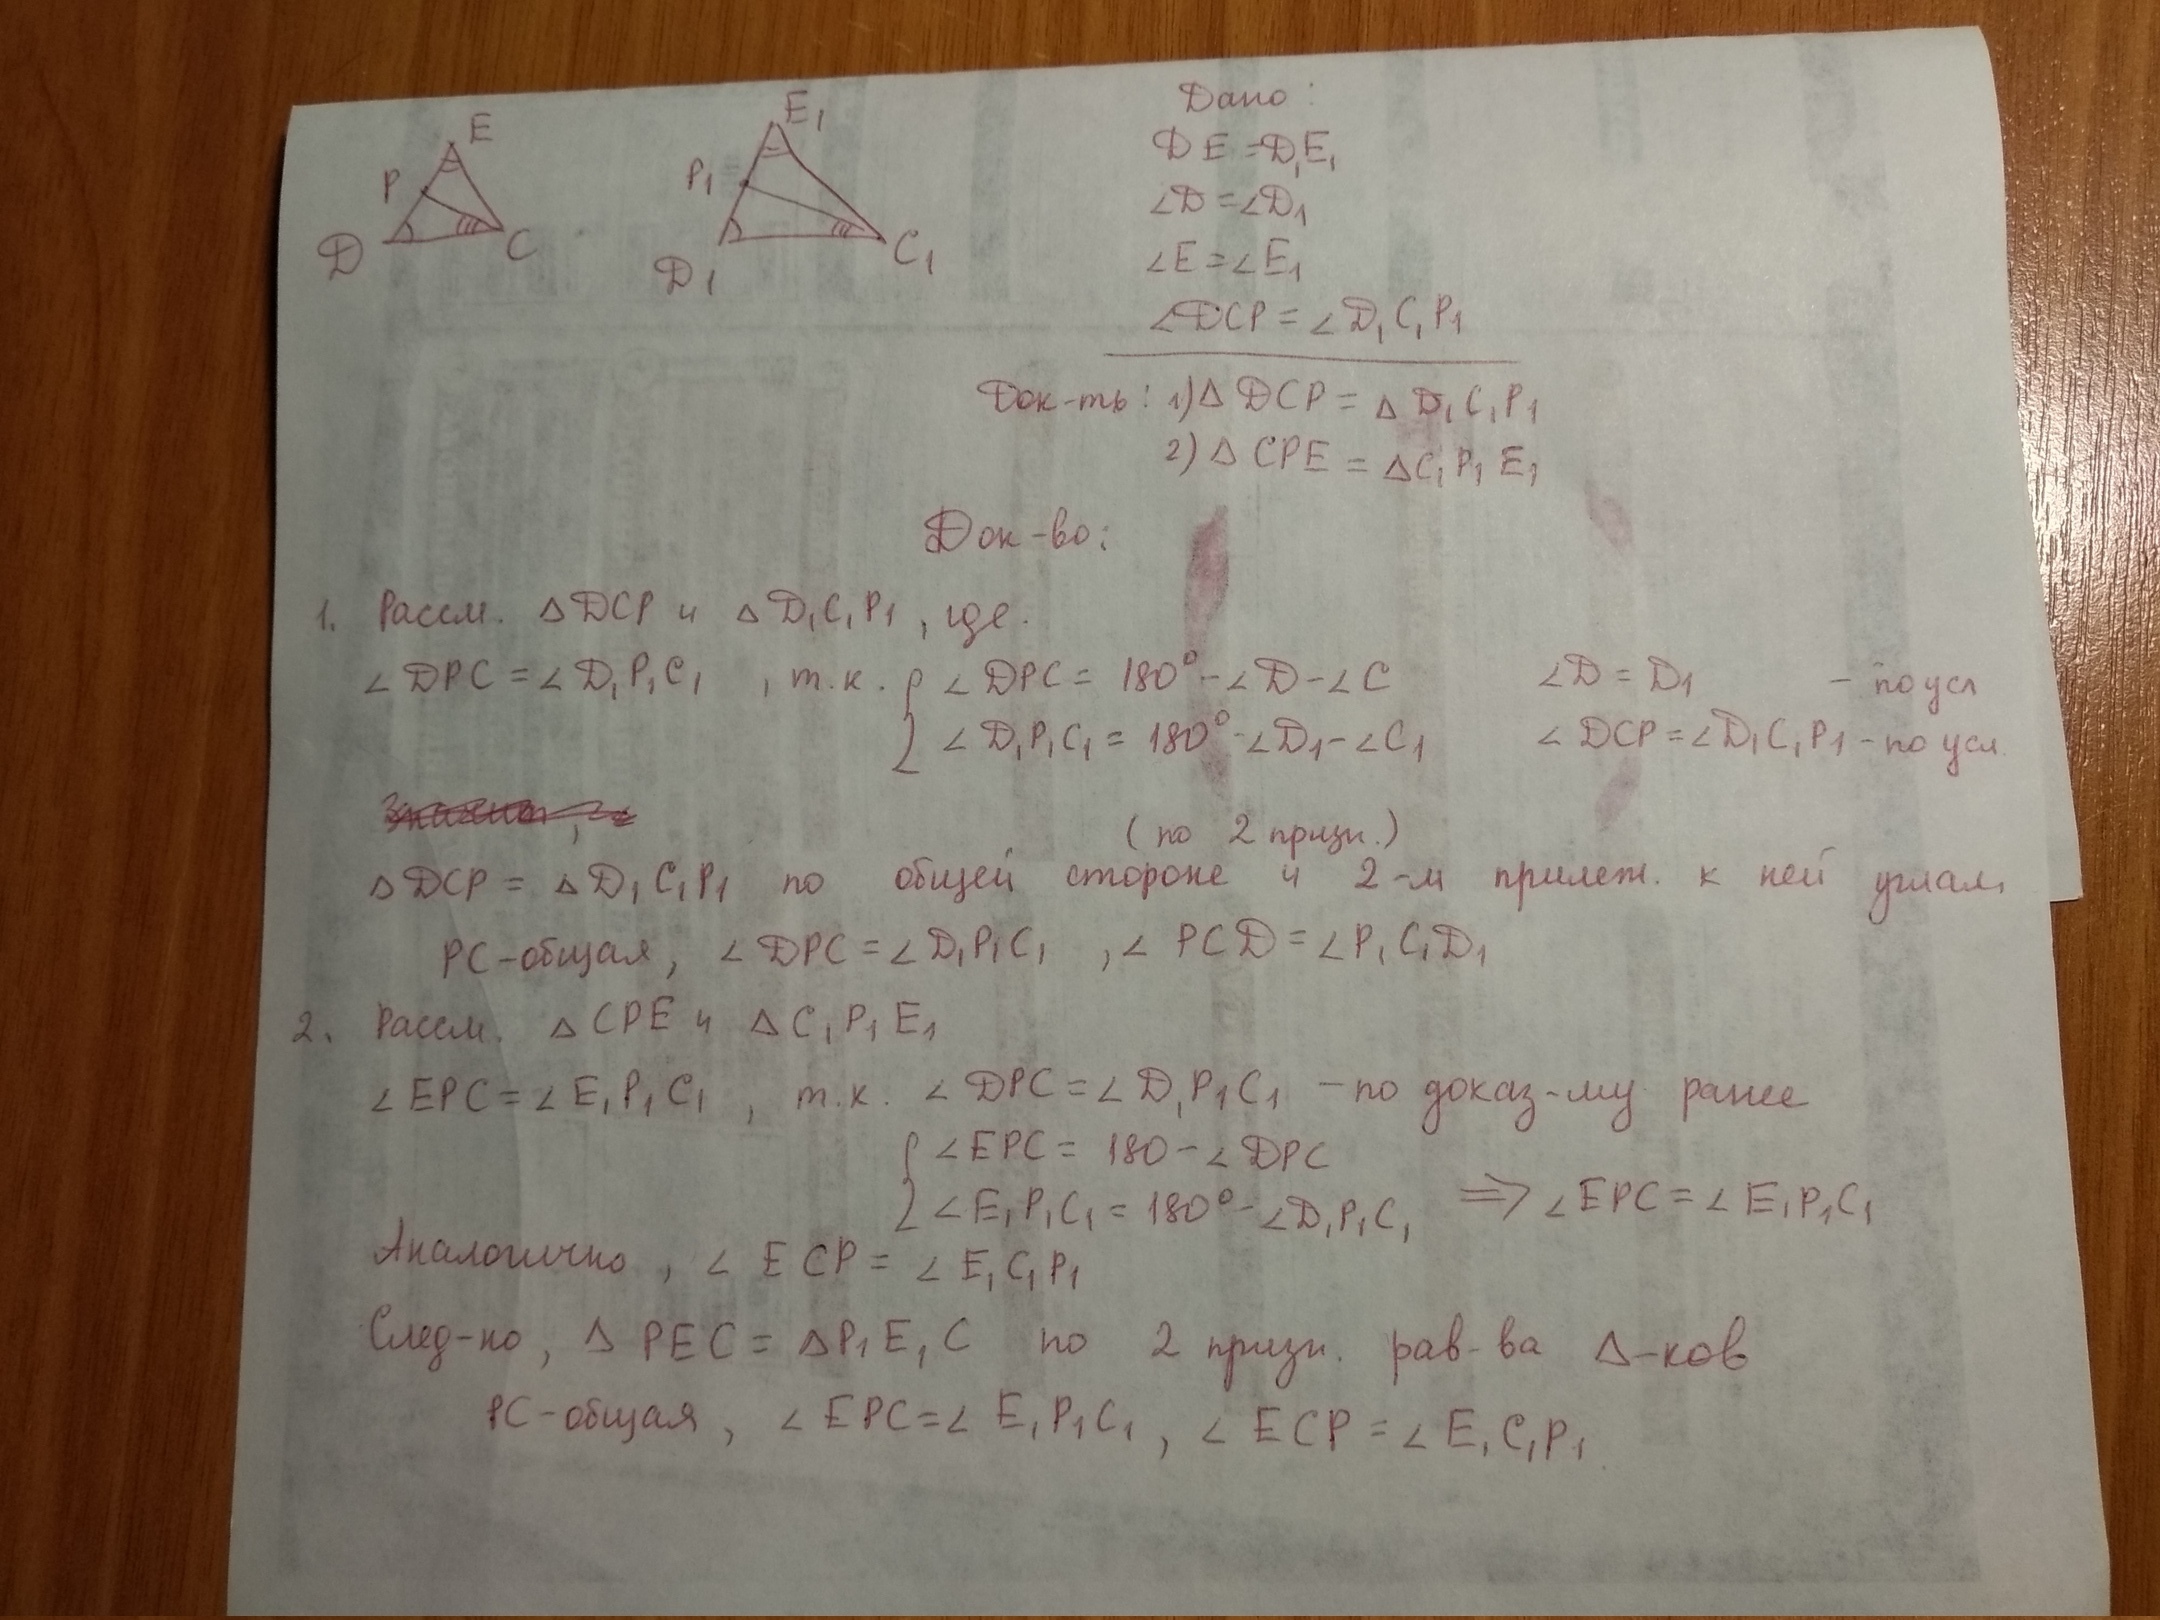 E
P
D
C
E1
P1
D1
C1
Дано:
DE=D1E1
∠D=∠D1
∠E=∠E1
∠DCP=∠D1C1P1
Док-ть: 1)△DCP=△D1C1P1
2)△CPE=△C1P1E1
Док-во:
1. Рассм. △DCP и △D1C1P1, где.
∠DPC=∠D1P1C1, т.к. { ∠DPC=180°-∠D-∠C ∠D=D1 - по усл
∠D1P1C1=180°-∠D1-∠C1 ∠DCP=∠D1C1P1 - по усл.
(по 2 призн.)
△DCP=△D1C1P1 по общей стороне и 2-м прилеж. к ней углам
PC-общая, ∠DPC=∠D1P1C1, ∠PCD=∠P1C1D1
2. Рассм. △CPE и △C1P1E1
∠EPC=∠E1P1C1, т.к. ∠DPC=∠D1P1C1 - по доказ-му ранее
{ ∠EPC=180-∠DPC
∠E1P1C1=180°-∠D1P1C1 => ∠EPC=∠E1P1C1
Аналогично, ∠ECP=∠E1C1P1
След-но, △PEC=△P1E1C по 2 призн. рав-ва △-ков
PC-общая, ∠EPC=∠E1P1C1, ∠ECP=∠E1C1P1